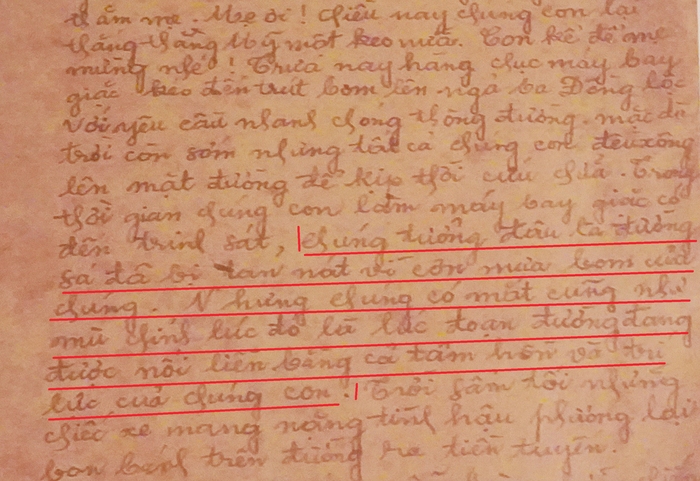 thắm mẹ. Mẹ ơi! Chiều nay chúng con lại
thắng thằng Mỹ một keo nữa. Con kể để mẹ
mừng nhé! Trưa nay hàng chục máy bay
giặc kéo đến trút bom lên ngã ba Đồng Lộc
Với yêu cầu nhanh chóng thông đường. mặc dù
trời còn sớm nhưng tất cả chúng con đều xông
lên mặt đường để kịp thời cứu chữa. Trong
thời gian chúng con làm máy bay giặc có
đến trinh sát, chúng tưởng đâu là đường
sá đã bị tan nát vì cơn mưa bom của
chúng. Nhưng chúng có mắt cũng như
mù chính lúc đó là lúc đoạn đường đang
được nối liền bằng cả tâm hồn và trí
lực của chúng con. Trời sẩm tối những
chiếc xe mang nặng tình hậu phương lại
bon bánh trên đường ra tiền tuyến.